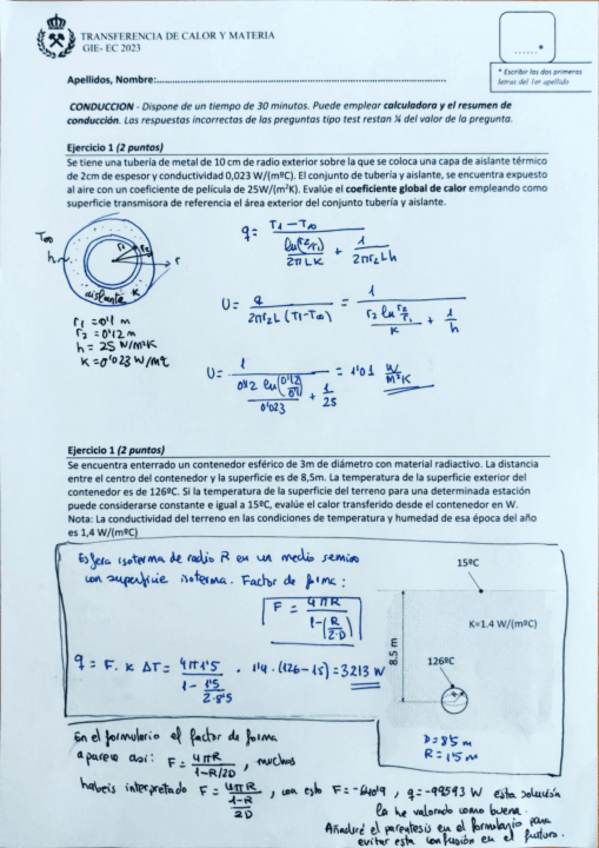 TRANSFERENCIA DE CALOR Y MATERIA
GIE- EC 2023
......*
* Escribir las dos primeras
letras del 1er apellido
Apellidos, Nombre:..........................................................................................
CONDUCCION - Dispone de un tiempo de 30 minutos. Puede emplear calculadora y el resumen de
conducción. Las respuestas incorrectas de las preguntas tipo test restan ¼ del valor de la pregunta.
Ejercicio 1 (2 puntos)
Se tiene una tubería de metal de 10 cm de radio exterior sobre la que se coloca una capa de aislante térmico
de 2cm de espesor y conductividad 0,023 W/(mºC). El conjunto de tubería y aislante, se encuentra expuesto
al aire con un coeficiente de película de 25W/(m²K). Evalúe el coeficiente global de calor empleando como
superficie transmisora de referencia el área exterior del conjunto tubería y aislante.
T∞
h
r1
r2
r
aislante K
r1 = 0'1 m
r2 = 0'12 m
h = 25 W/m²K
K = 0'023 W/m℃
q = (T1 - T∞) / (ln(r2/r1)/(2πLK) + 1/(2πr2Lh))
U = q / (2πr2L(T1-T∞)) = 1 / (r2 ln(r2/r1)/K + 1/h)
U = 1 / (0'12 ln(0'12/0'1)/0'023 + 1/25) = 1'01 W/m²K
Ejercicio 1 (2 puntos)
Se encuentra enterrado un contenedor esférico de 3m de diámetro con material radiactivo. La distancia
entre el centro del contenedor y la superficie es de 8,5m. La temperatura de la superficie exterior del
contenedor es de 126ºC. Si la temperatura de la superficie del terreno para una determinada estación
puede considerarse constante e igual a 15ºC, evalúe el calor transferido desde el contenedor en W.
Nota: La conductividad del terreno en las condiciones de temperatura y humedad de esa época del año
es 1,4 W/(mºC)
Esfera isoterma de radio R en un medio semiinf
con superficie isoterma. Factor de forma:
F = 4πR / (1-(R/2·D))
q = F. K ΔT = 4π1'5 / (1 - 1'5/(2·8'5)) · 1'4 · (126-15) = 3213 W
15ºC
K=1.4 W/(mºC)
8.5 m
126ºC
D = 8'5 m
R = 1'5 m
En el formulario el factor de forma
aparece asi: F = 4πR / 1-R/2D, muchos
habeis interpretado F = 4πR / ((1-R)/2D), con esto F = -640'9, q = -99593 W esta solución
la he valorado como buena.
Añadiré el parentesis en el formulario para
evitar esta confusión en el futuro.